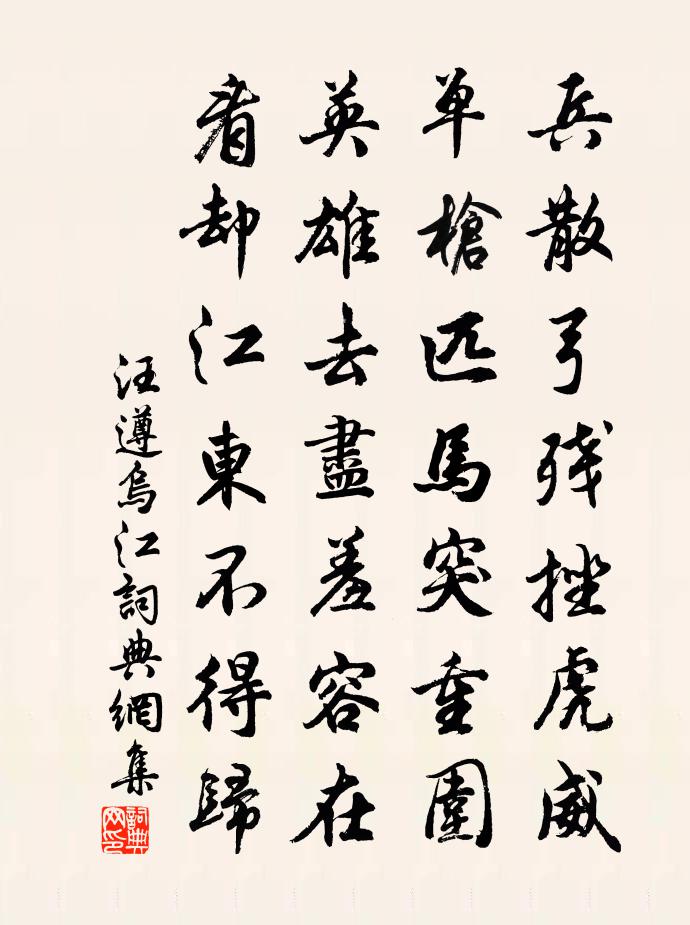 兵散弓残挫虎威
单槍匹馬突重圍
英雄去盡羞容在
看却江東不得歸
汪遵烏江詞典網集
詞典網印